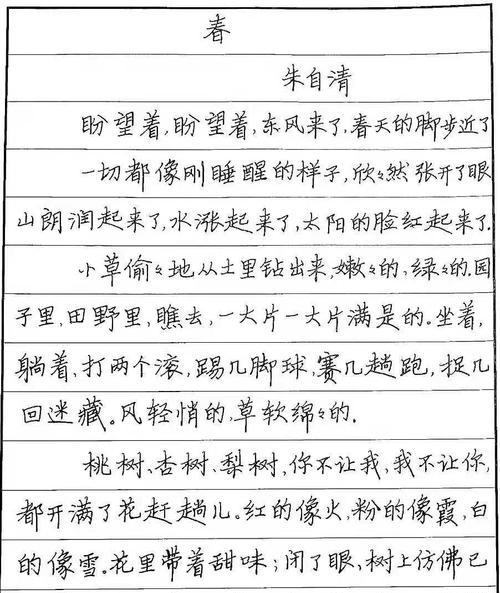 春
朱自清
盼望着,盼望着,东风来了,春天的脚步近了
一切都像刚睡醒的样子,欣々然张开了眼
山朗润起来了,水涨起来了,太阳的脸红起来了.
小草偷々地从土里钻出来,嫩々的,绿々的.园
子里,田野里,瞧去,一大片一大片满是的。坐着,
躺着,打两个滚,踢几脚球,赛几趟跑,捉几
回迷藏。风轻悄的,草软绵々的.
桃树、杏树、梨树,你不让我,我不让你,
都开满了花赶趟儿。红的像火,粉的像霞,白
的像雪。花里带着甜味;闭了眼、树上仿佛已